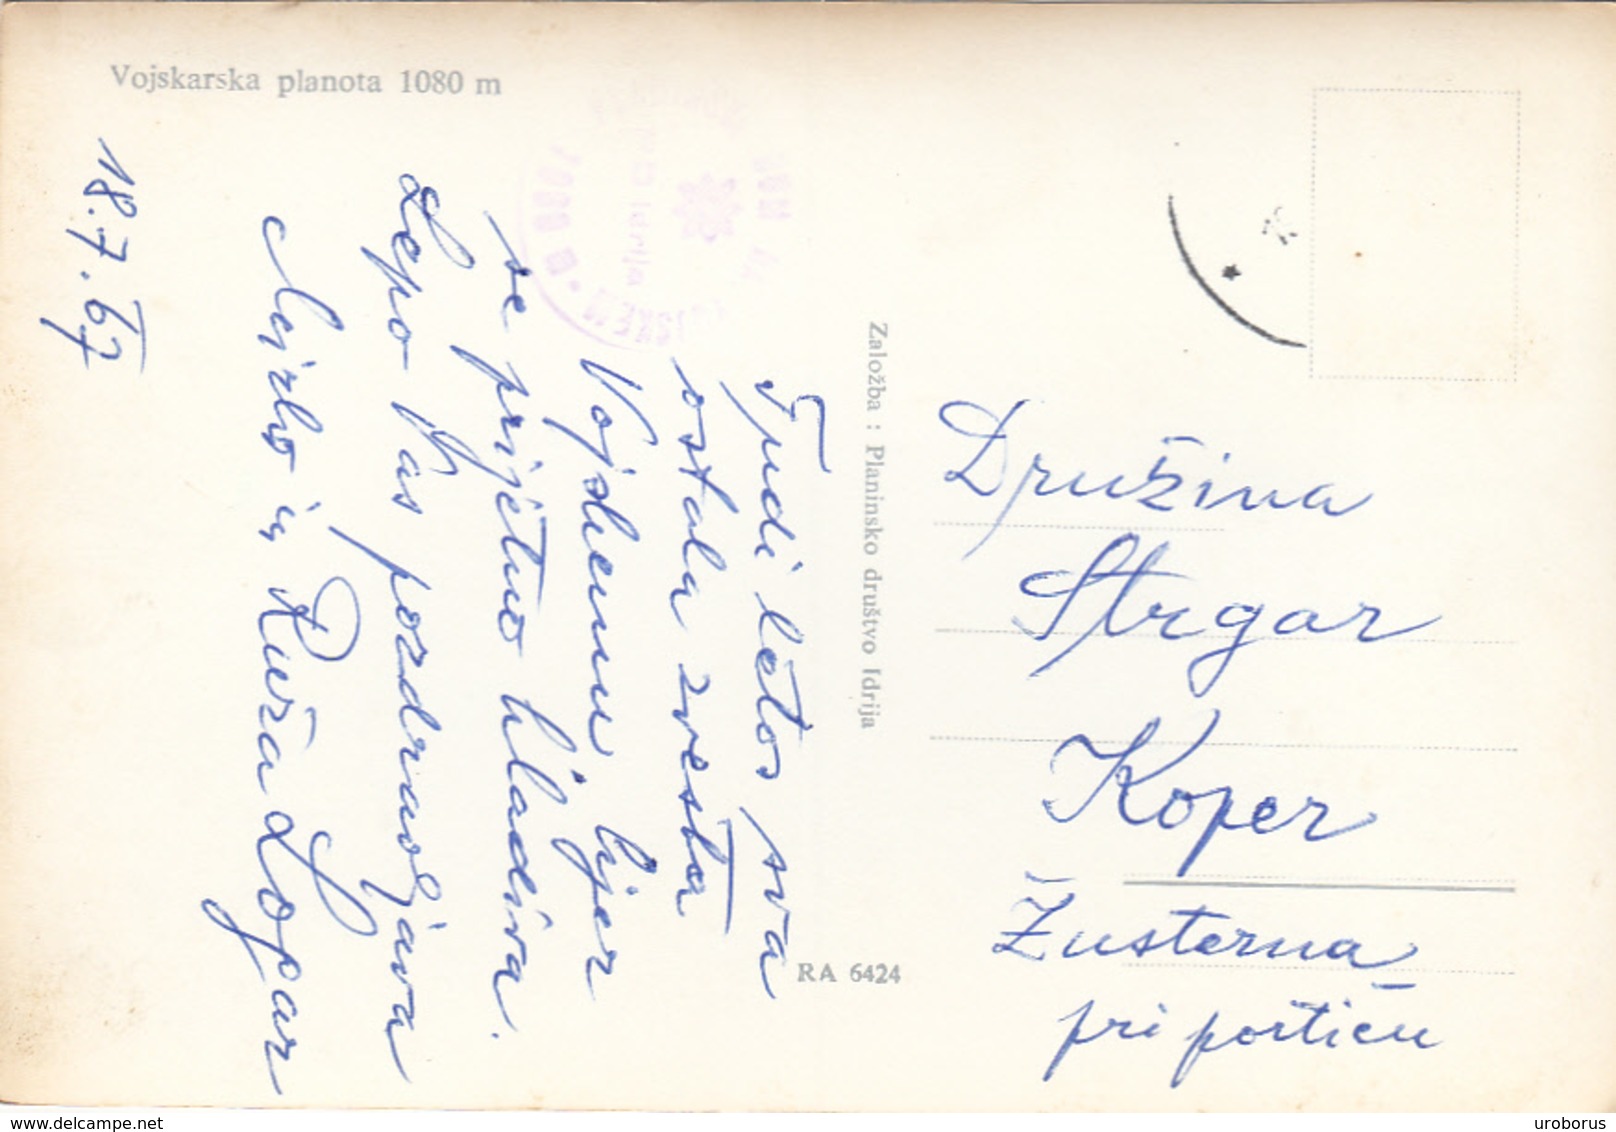 Vojskarska planota 1080 m
18. 7. 67
Tudi letos sva
ostala zvesta
Vojskemu kjer
se prijetno hladiva.
Lepo Vas pozdravljava
Mirko in Ruža Logar
Založba : Planinsko društvo Idrija
RA 6424
Družina
Strgar
Koper
Žusterna
pri portiču
www.delcampe.net
uroborus